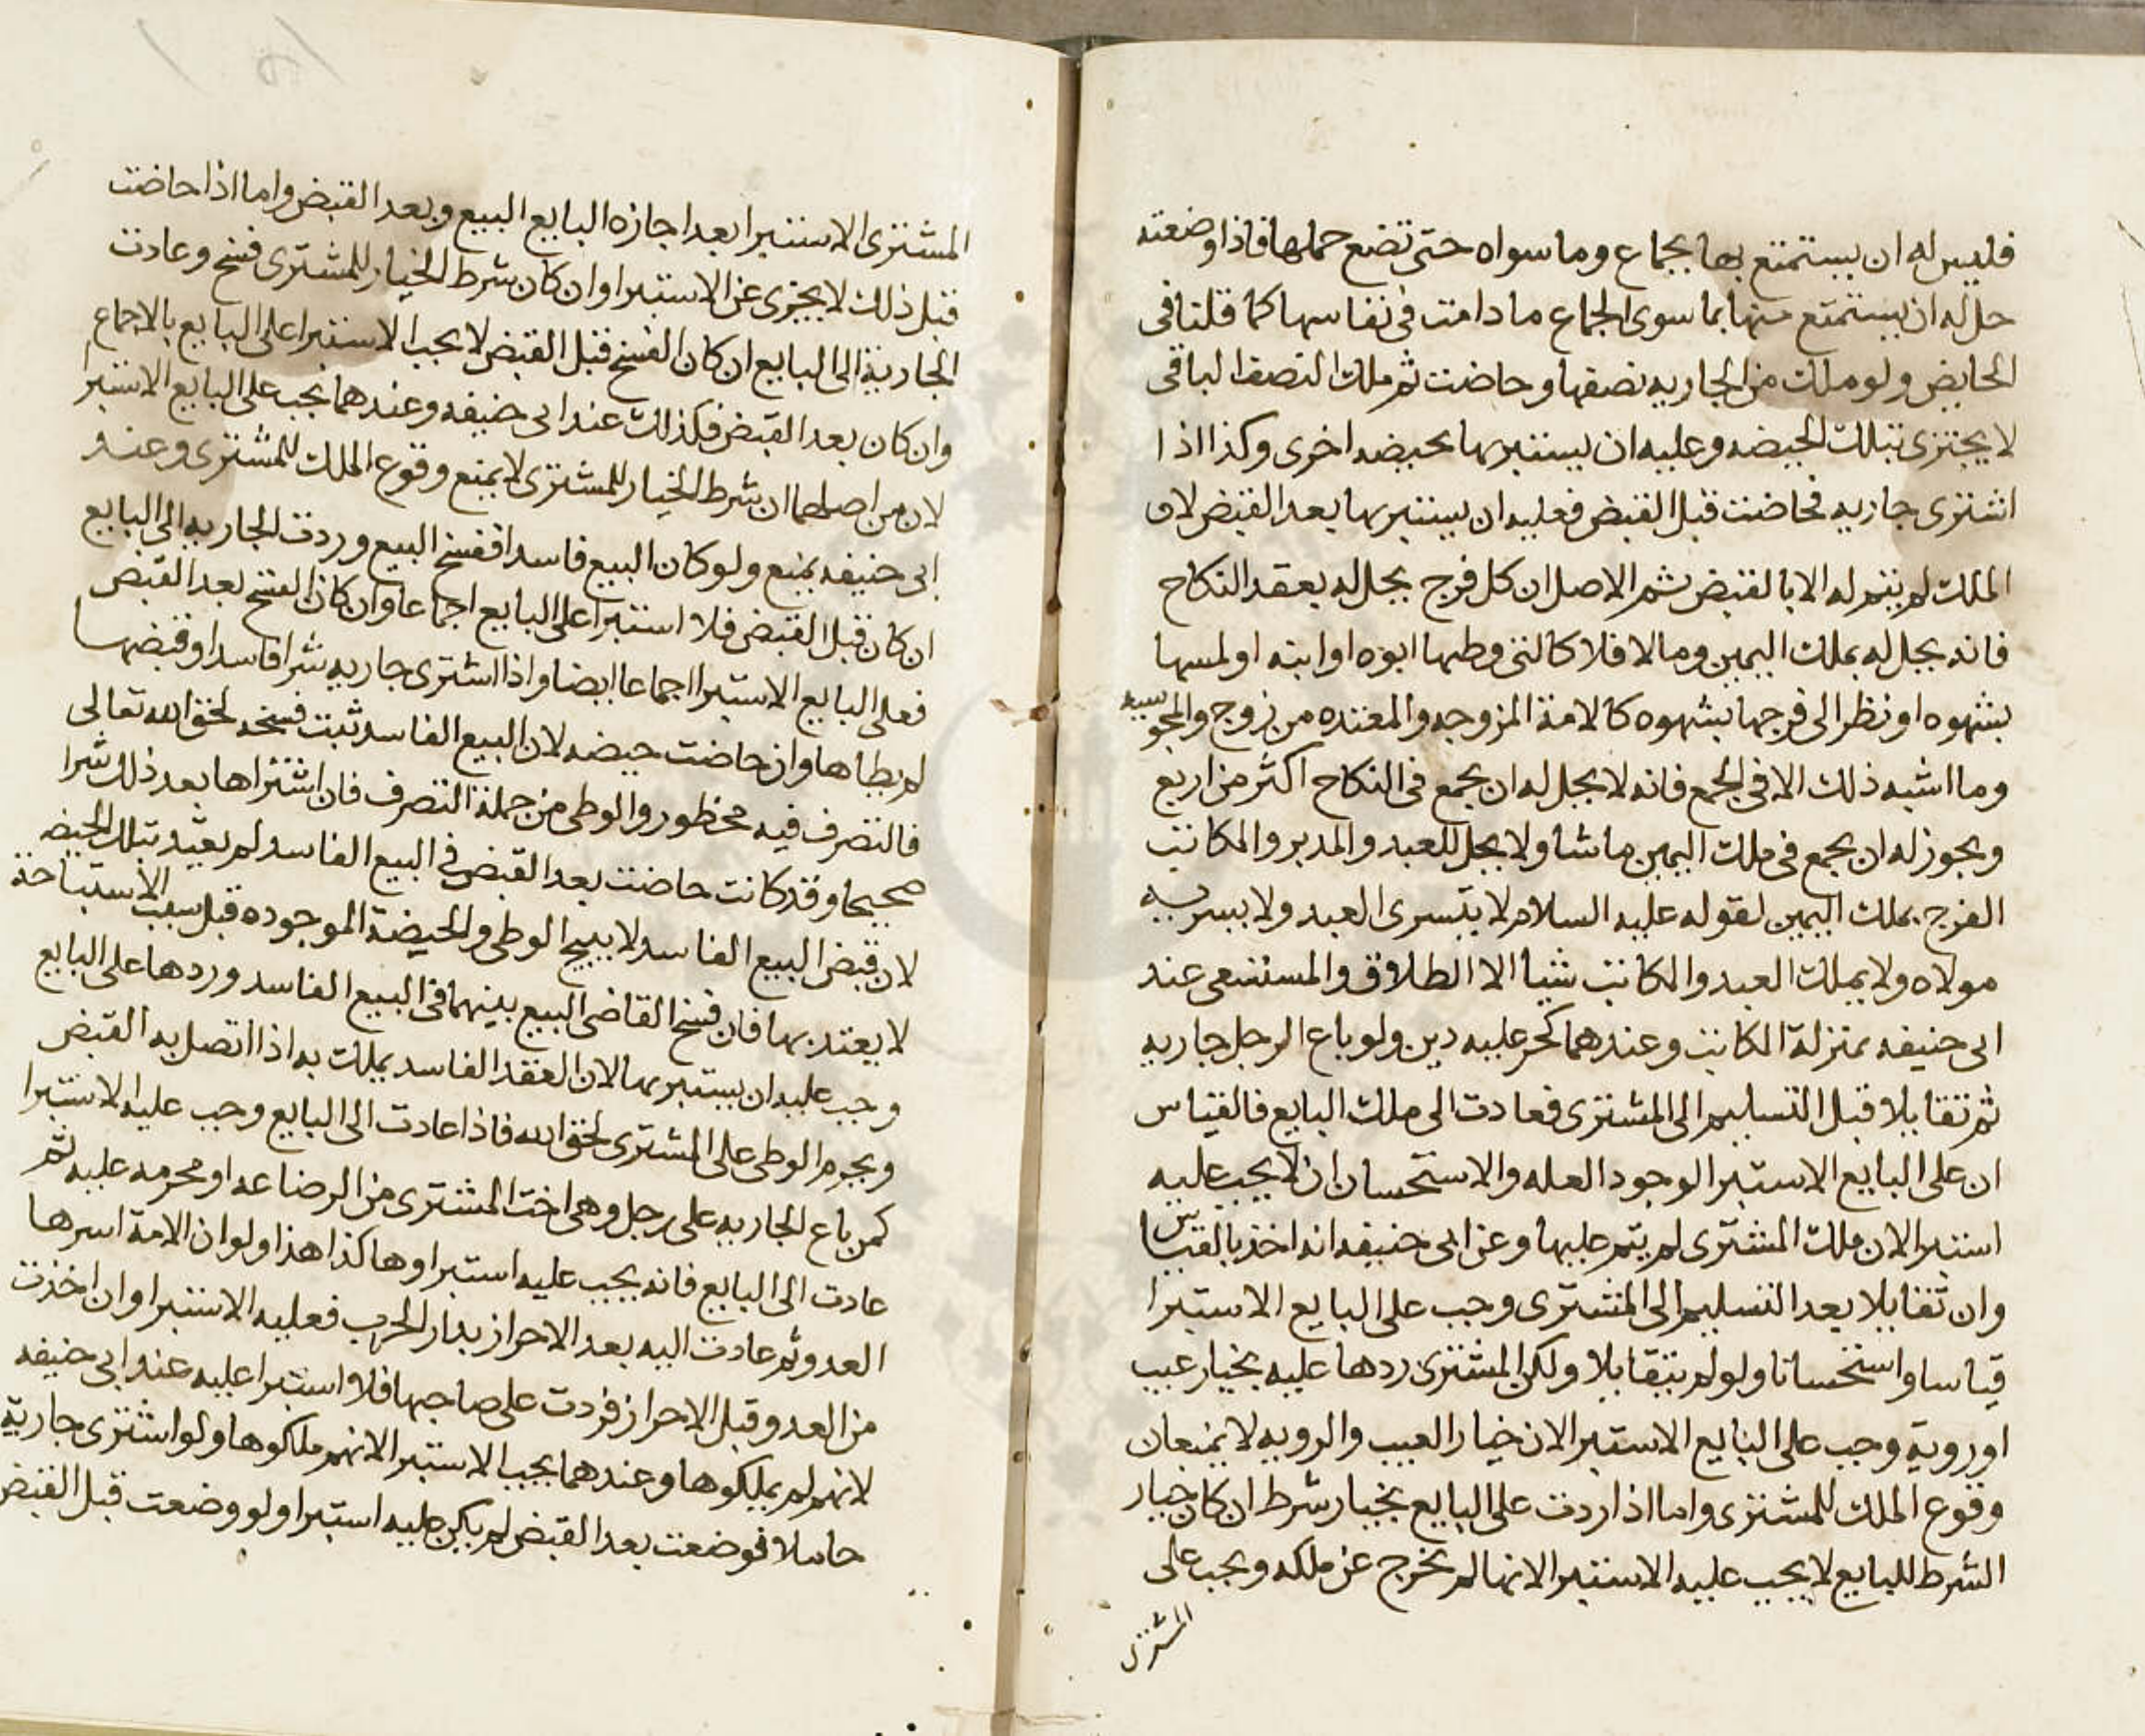 فليس له ان يستمتع بها بجماع وما سواه حتى تضع حملها فاذا وضعته
حل له ان يستمتع منها بما سوى الجماع ما دامت فى نفاسها كما قلنا فى
الحايض ولو ملك من الجاريه نصفها وحاضت ثم ملك النصف الباقى
لا يجتزى بتلك الحيضه وعليه ان يستبريها بحيضه اخرى وكذا اذا
اشترى جاريه فحاضت قبل القبض فعليه ان يستبريها بعد القبض لان
الملك لم يتم له الا بالقبض ثم الاصل ان كل فرج يحل له بعقد النكاح
فانه يحل له بملك اليمين وما لا فلا كالتى وطيها ابوه او ابنه او لمسها
بشهوه او نظر الى فرجها بشهوه كالامة المزوجه والمعتده من زوج والمجوسيه
وما اشبه ذلك الا فى الجمع فانه لا يحل له ان يجمع فى النكاح اكثر من اربع
ويجوز له ان يجمع فى ملك اليمين ما شا ولا يحل للعبد والمدبر والمكاتب
الفرج بملك اليمين لقوله عليه السلام لا يتسرى العبد ولا يسريه
مولاه ولا يملك العبد والمكاتب شيا الا الطلاق والمستسعى عند
ابى حنيفه بمنزلة المكاتب وعندهما كحر عليه دين ولو باع الرجل جاريه
ثم تقايلا قبل التسليم الى المشترى فعادت الى ملك البايع فالقياس
ان على البايع الاستبرا لوجود العله والاستحسان ان لا يجب عليه
استبرا لان ملك المشترى لم يتم عليها وعن ابى حنيفه انه اخذ بالقياس
وان تقايلا بعد التسليم الى المشترى وجب على البايع الاستبرا
قياسا واستحسانا ولو لم يتقايلا ولكن المشترى ردها عليه بخيار عيب
او روية وجب على البايع الاستبرا لان خيار العيب والرويه لا يمنعان
وقوع الملك للمشترى واما اذا ردت على البايع بخيار شرط ان كان خيار
الشرط للبايع لا يجب عليه الاستبرا لانها لم تخرج عن ملكه ويجب على
المشترى
المشترى الاستبرا بعد اجازه البايع البيع وبعد القبض واما اذا حاضت
قبل ذلك لا يجزى عن الاستبرا وان كان شرط الخيار للمشترى فسخ وعادت
الجارية الى البايع ان كان الفسخ قبل القبض لا يجب الاستبرا على البايع بالاجماع
وان كان بعد القبض فكذلك عند ابى حنيفه وعندهما يجب على البايع الاستبرا
لان من اصلهما ان شرط الخيار للمشترى لا يمنع وقوع الملك للمشترى وعند
ابى حنيفه يمنع ولو كان البيع فاسدا ففسخ البيع وردت الجاريه الى البايع
ان كان قبل القبض فلا استبرا على البايع اجماعا وان كان الفسخ بعد القبض
فعلى البايع الاستبرا اجماعا ايضا واذا اشترى جاريه شرا فاسدا وقبضها
لم يطاها وان حاضت حيضه لان البيع الفاسد ثبت فسخه لحق الله تعالى
فالتصرف فيه محظور والوطى من جملة التصرف فان اشتراها بعد ذلك شرا
صحيحا وقد كانت حاضت بعد القبض فى البيع الفاسد لم يعتد بتلك الحيضه
لان قبض البيع الفاسد لا يبيح الوطى والحيضة الموجوده قبل سبب الاستباحة
لا يعتد بها فان فسخ القاضى البيع بينهما فى البيع الفاسد وردها على البايع
وجب عليه ان يستبريها لان العقد الفاسد يملك به اذا اتصل به القبض
ويحرم الوطى على المشترى لحق الله فاذا عادت الى البايع وجب عليه الاستبرا
كمن باع الجاريه على رجل وهى اخت المشترى من الرضاعه او محرمه عليه ثم
عادت الى البايع فانه يجب عليه استبراوها كذا هذا ولو ان الامة اسرها
العدو ثم عادت اليه بعد الاحراز بدار الحرب فعليه الاستبرا وان اخذت
من العدو قبل الاحراز فردت على صاحبها فلا استبرا عليه عند ابى حنيفه
لانهم لم يملكوها وعندهما يجب الاستبرا لانهم ملكوها ولو اشترى جارية
حاملا فوضعت بعد القبض لم يكن عليه استبرا ولو وضعت قبل القبض